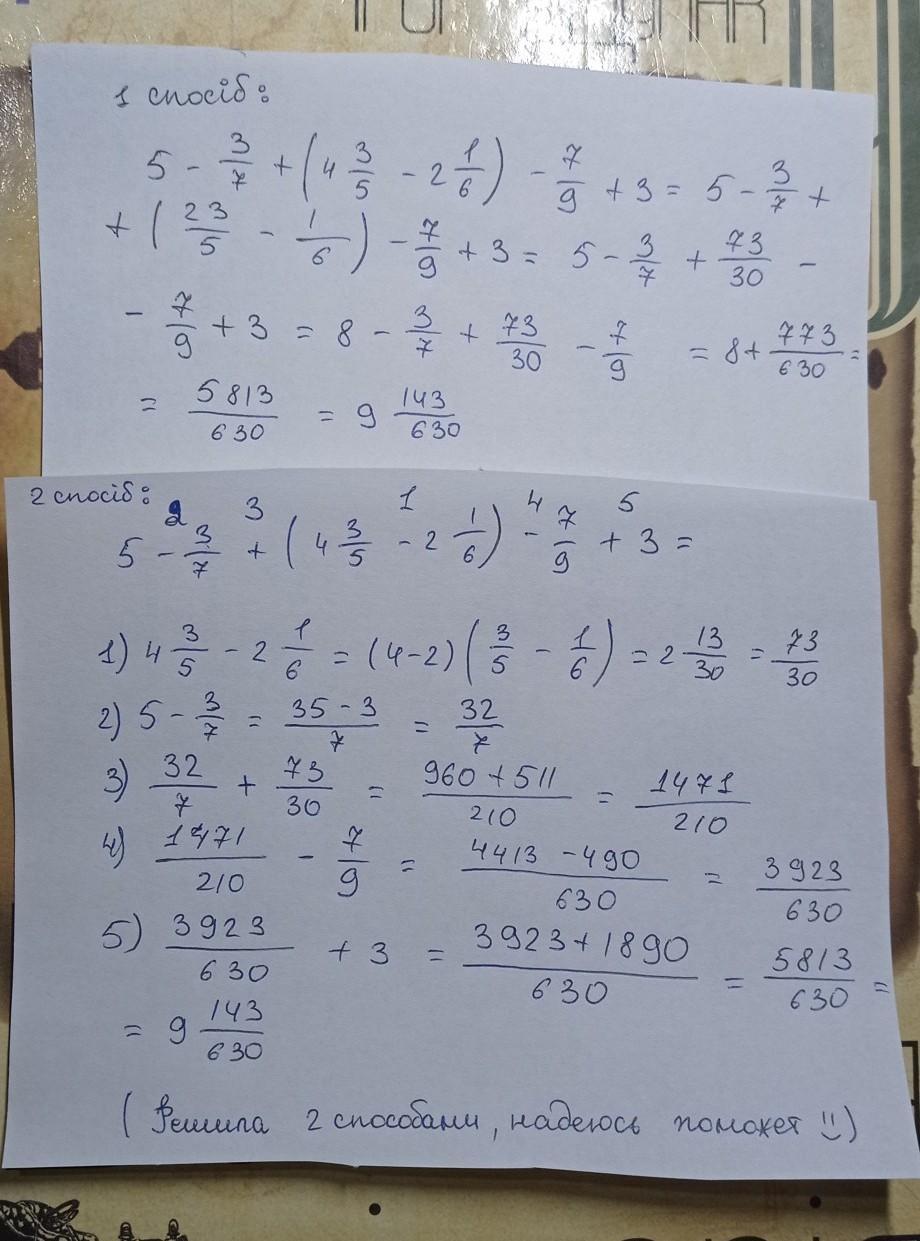 1 спосіб:
5 - 3/7 + (4 3/5 - 2 1/6) - 7/9 + 3 = 5 - 3/7 +
+ (23/5 - 1/6) - 7/9 + 3 = 5 - 3/7 + 73/30 -
- 7/9 + 3 = 8 - 3/7 + 73/30 - 7/9 = 8 + 773/630 =
= 5813/630 = 9 143/630
2 спосіб:
2 3 1 4 5
5 - 3/7 + (4 3/5 - 2 1/6) - 7/9 + 3 =
1) 4 3/5 - 2 1/6 = (4-2) (3/5 - 1/6) = 2 13/30 = 73/30
2) 5 - 3/7 = 35 - 3/7 = 32/7
3) 32/7 + 73/30 = 960 + 511/210 = 1471/210
4) 1471/210 - 7/9 = 4413 - 490/630 = 3923/630
5) 3923/630 + 3 = 3923 + 1890/630 = 5813/630 =
= 9 143/630
(Решила 2 способами, надеюсь поможет !:))